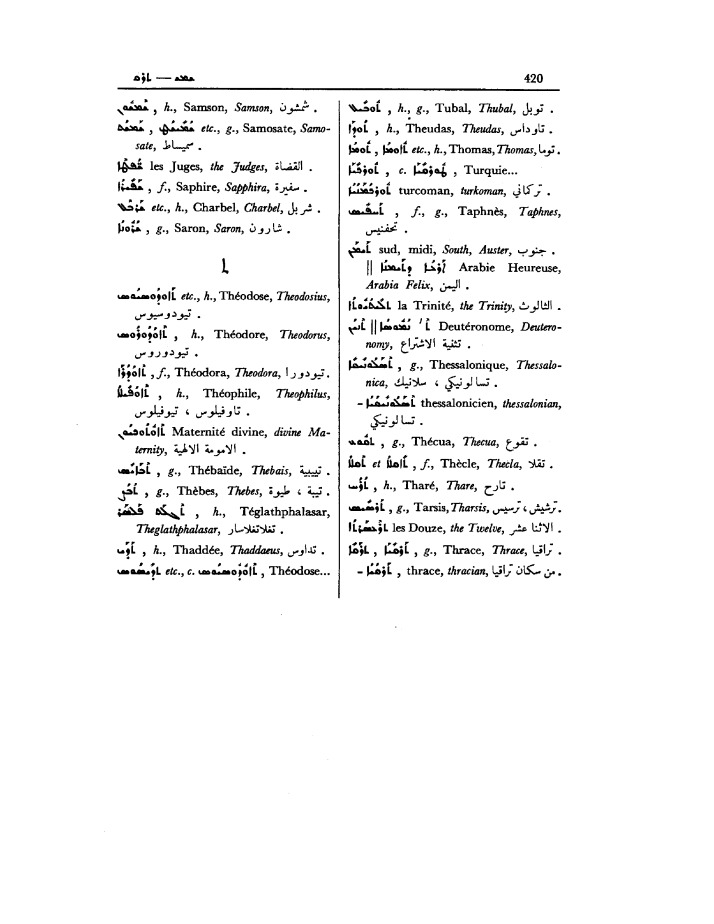 ܫܡܫ — ܬܐܘܕ 420
ܫܡܫܘܢ , h., Samson, Samson, شمشون .
ܫܡܝܫܛ , etc., g., Samosate, Samo-
sate, سميساط .
les Juges, the Judges, القضاة .
ܫܦܝܪܐ , f., Saphire, Sapphira, سفيرة .
ܫܪܒܝܠ etc., h., Charbel, Charbel, شربل .
ܫܪܘܢܐ , g., Saron, Saron, شارون .
ܬ
ܬܐܘܕܘܣܝܘܣ etc., h., Théodose, Theodosius,
تيودوسيوس .
ܬܐܘܕܘܪܘܣ , h., Théodore, Theodorus,
تيودوروس .
ܬܐܘܕܘܪܐ , f., Théodora, Theodora, تيودورا .
ܬܐܘܦܝܠܐ , h., Théophile, Theophilus,
تاوفيلوس ، تيوفيلوس .
Maternité divine, divine Ma-
ternity, الامومة الالهية .
, g., Thébaïde, Thebais, تيبية .
, g., Thèbes, Thebes, تيبة ، طيوة .
ܬܓܠܬ ܦܠܣܪ , h., Téglathphalasar,
Theglathphalasar, تغلاتفلاسار .
ܬܕܝ , h., Thaddée, Thaddaeus, تداوس .
etc., c. ܬܐܘܕܘܣܝܘܣ , Théodose...
ܬܘܒܝܠ , h., g., Tubal, Thubal, توبل .
ܬܘܕܐ , h., Theudas, Theudas, تاوداس .
ܬܐܘܡܐ , ܬܘܡܐ etc., h., Thomas, Thomas, توما .
ܬܘܪܩܝܐ , c. ܛܘܪܩܝܐ , Turquie...
turcoman, turkoman, تركماني .
ܬܚܦܢܝܣ , f., g., Taphnès, Taphnes,
تحفنيس .
ܬܝܡܢ sud, midi, South, Auster, جنوب .
|| ܐܪܒܝܐ ܕܬܝܡܢܐ Arabie Heureuse,
Arabia Felix, اليمن .
la Trinité, the Trinity, الثالوث .
ܬܢܝܢ || ܬ' ܢܡܘܣܐ Deutéronome, Deutero-
nomy, تثنية الاشتراع .
ܬܣܠܘܢܝܩܐ , g., Thessalonique, Thessalo-
nica, تسالونيكي ، سلانيك .
- thessalonicien, thessalonian,
تسالونيكي .
ܬܩܘܥ , g., Thécua, Thecua, تقوع .
ܬܩܠܐ et ܬܐܩܠܐ , f., Thècle, Thecla, تقلا .
ܬܪܚ , h., Tharé, Thare, تارح .
ܬܪܫܝܫ , g., Tarsis, Tharsis, ترشيش ، ترسيس .
ܬܪܥܣܪܬܐ les Douze, the Twelve, الاثنا عشر .
ܬܪܩܝܐ , , g., Thrace, Thrace, تراقيا .
- , thrace, thracian, من سكان تراقيا .